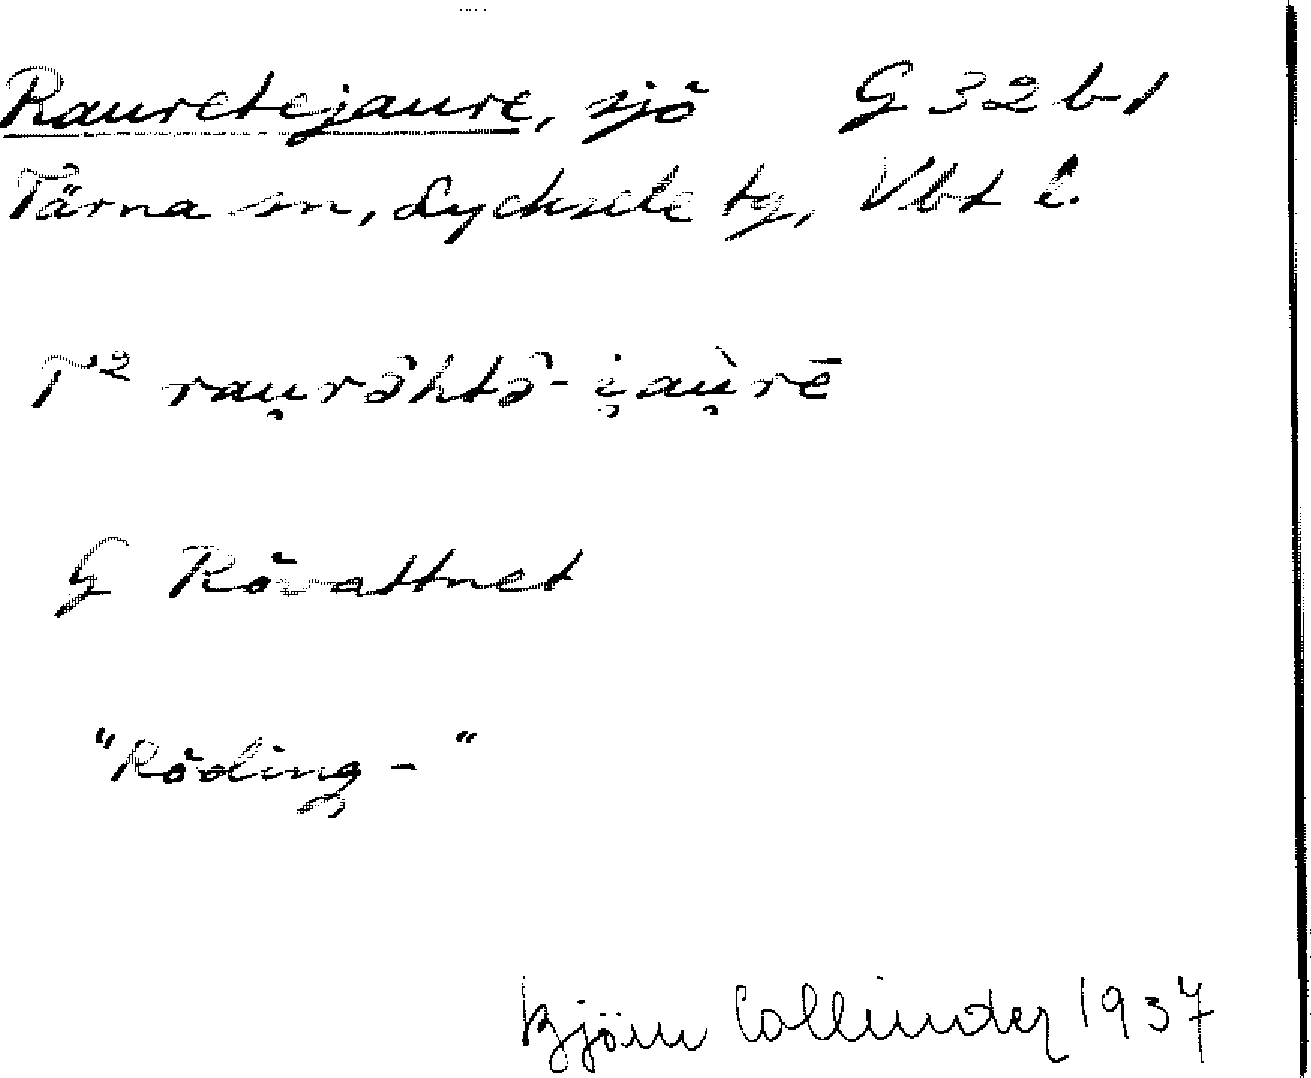 Rauretejaure, sjö G 32 b 1
Tärna sn, Lycksele tg, Vbt l.
T² rau̯rə̂htə̂-i̯aù̯rē
G Rövattnet
"Röding-"
Björn Collinder 1937